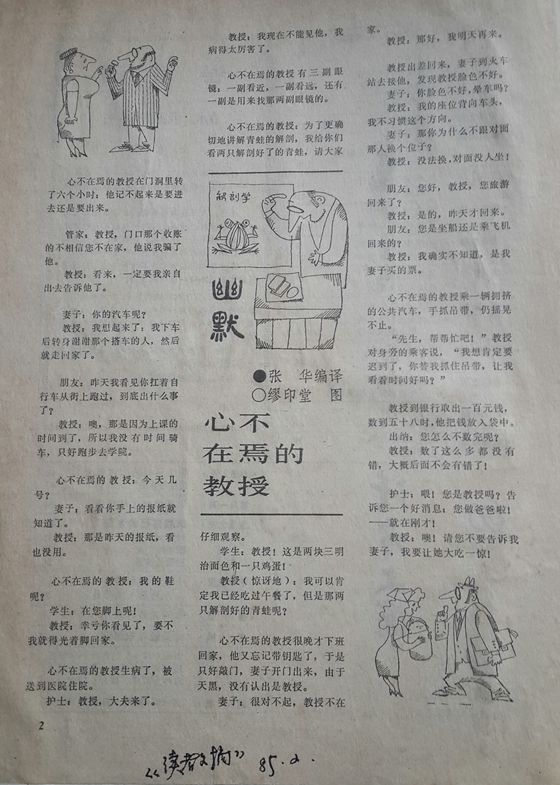 心不在焉的教授在门洞里转
了六个小时：他记不起来是要进
去还是要出来。
管家：教授，门口那个收帐
的不相信您不在家，他说我骗了
他。
教授：看来，一定要我亲自
出去告诉他了。
妻子：你的汽车呢？
教授：我想起来了：我下车
后转身谢谢那个搭车的人，然后
就走回家了。
朋友：昨天我看见你扛着自
行车从街上跑过，到底出什么事
了？
教授：噢，那是因为上课的
时间到了，所以我没有时间骑
车，只好跑步去学院。
心不在焉的教授：今天几
号？
妻子：看看你手上的报纸就
知道了。
教授：那是昨天的报纸，看
也没用。
心不在焉的教授：我的鞋
呢？
学生：在您脚上呢！
教授：幸亏你看见了，要不
我就得光着脚回家。
心不在焉的教授生病了，被
送到医院住院。
护士：教授，大夫来了。
教授：我现在不能见他，我
病得太厉害了。
心不在焉的教授有三副眼
镜：一副看近，一副看远，还有
一副是用来找那两副眼镜的。
心不在焉的教授：为了更确
切地讲解青蛙的解剖，我给你们
看两只解剖好了的青蛙，请大家
解剖学
幽
默
●张　华编译
○缪印堂　图
心不
在焉的
教授
仔细观察。
学生：教授！这是两块三明
治面包和一只鸡蛋！
教授（惊讶地）：我可以肯
定我已经吃过午餐了，但是那两
只解剖好的青蛙呢？
心不在焉的教授很晚才下班
回家，他又忘记带钥匙了，于是
只好敲门，妻子开门出来，由于
天黑，没有认出是教授。
妻子：很对不起，教授不在
家。
教授：那好，我明天再来。
教授出差回来，妻子到火车
站去接他，发现教授脸色不好。
妻子：你脸色不好，晕车吗？
教授：我的座位背向车头，
我不习惯这个方向。
妻子：那你为什么不跟对面
那人换个位子？
教授：没法换，对面没人坐！
朋友：您好，教授，您旅游
回来了？
教授：是的，昨天才回来。
朋友：您是坐船还是乘飞机
回来的？
教授：我确实不知道，是我
妻子买的票。
心不在焉的教授乘一辆拥挤
的公共汽车，手抓吊带，仍摇晃
不止。
“先生，帮帮忙吧！”教授
对身旁的乘客说，“我想肯定要
迟到了，你替我抓住吊带，让我
看看时间好吗？”
教授到银行取出一百元钱，
数到五十八时，他把钱放入袋中。
出纳：您怎么不数完呢？
教授：数了这么多都没有
错，大概后面不会有错了！
护士：喂！您是教授吗？告
诉您一个好消息：您做爸爸啦！
——就在刚才！
教授：噢！请您不要告诉我
妻子，我要让她大吃一惊！
2
《读者文摘》 85.2.